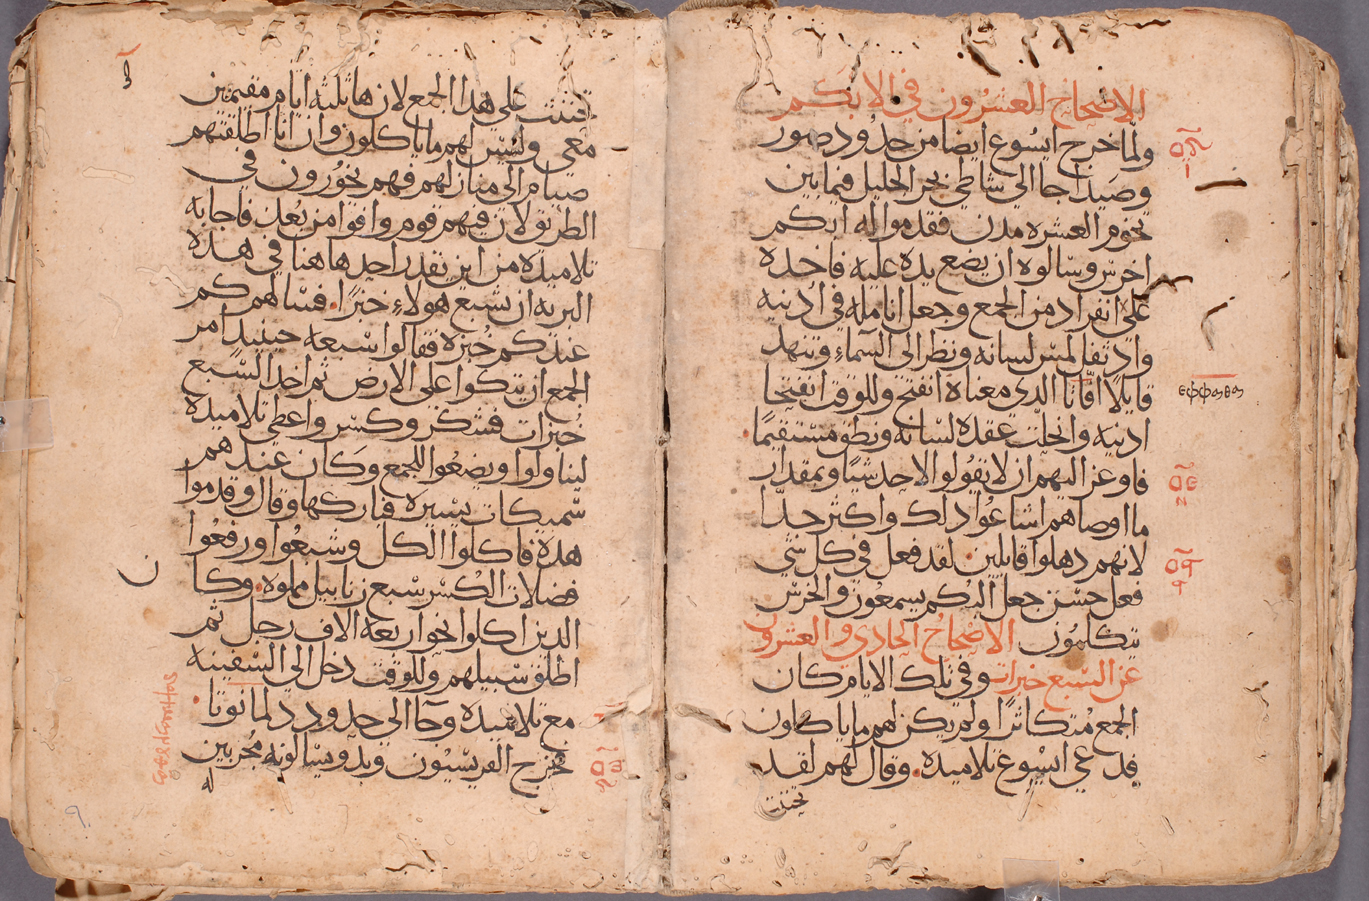 الاصحاح العشرون في الابكم
ولما خرج ايسوع ايضا من حدود صور
وصيدا جا الى شاطى بحر الجليل فيما بين
تخوم العشره مدن فقدموا له ابكم
اخرس وسالوه ان يضع يده عليه فاخده
على انفراد من الجمع وجعل انامله في ادنيه
واد تفل لمس لسانه ونظر الى السماء وتنهد
قايلا افاتا الدي معناه انفتح وللوقت انفتحا
ادنيه وانحلت عقدة لسانه ونطق مستقيمًا
فاوعز اليهم ان لا يقولوا لاحد شيًا وبمقدار
ما اوصاهم اشاعوا دلك واكتر جدًا
لانهم دهلوا قايلين لقد فعل في كل شي
فعل حسن جعل البكم يسمعون والخرس
يتكلمون الاصحاح الحادي والعشرون
عن السبع خبزات وفي تلك الايام كان
الجمع متكاترًا ولم يكن لهم ما ياكلون
فدعي ايسوع تلاميده وقال لهم لقد
تحننت
ⲉⲫⲫⲁⲑⲁ
تحننت على هدا الجمع لان ها تلته ايام مقيمين
معي وليس لهم ما ياكلون وان انا اطلقتهم
صيام الى منازلهم فهم يخورون في
الطريق لان فيهم قوم وافوا من بعد فاجابه
تلاميده من اين يقدر احد هاهنا في هده
البريه ان يشبع هولاء خبزًا فسالهم كم
عندكم خبزه فقالوا سبعه حينيد امر
الجمع ان يتكوا على الارض تم اخد السبع
خبزات فشكر وكسر واعطى تلاميده
ليناولوا ويضعوا للجمع وكان عندهم
سميكات يسيره فباركها وقال وقدموا
هده فاكلوا الكل وشبعوا ورفعوا
فضلات الكسر سبع زنابيل مملوه وكا
ن
الدين اكلوا نحو اربعة الاف رجل تم
اطلق سبيلهم وللوقت دخل الى السفينه
مع تلاميده وجا الى حدود دلمانوتا
فخرج الفريسيون وبدو يسالونه مجربين
له